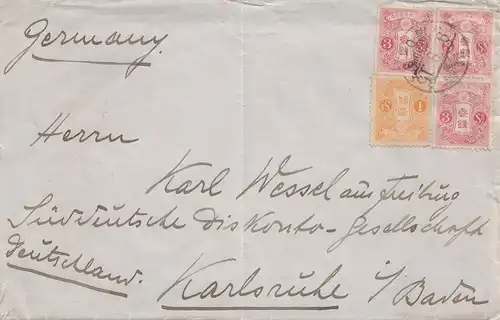 Germany.
3 Sn
3 Sn
1 Sn
3 Sn
Herrn
Karl Wessel aus Freiburg
Süddeutsche Diskonto-Gesellschaft
Deutschland.
Karlsruhe i/Baden